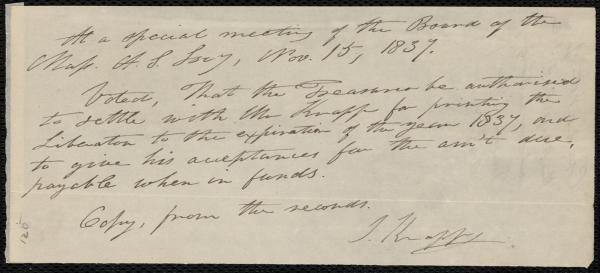 At a special meeting of the Board of the
Mass. A. S. Socy, Nov. 15, 1837.
Voted, That the Treasurer be authorised
to settle with Mr Knapp for printing the
Liberator to the expiration of the year 1837, and
to give his acceptances for the am't due,
payable when in funds.
Copy, from the records.
I. Knapp